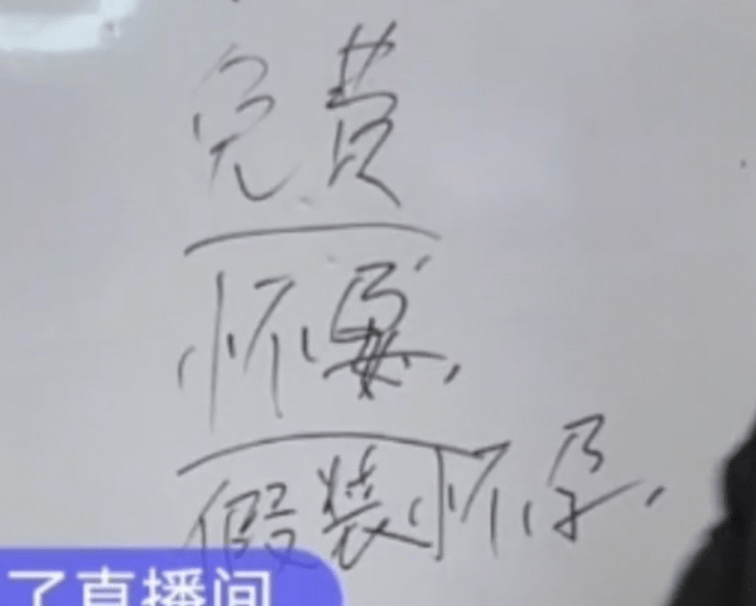 免费
怀孕
假装怀孕
了直播间